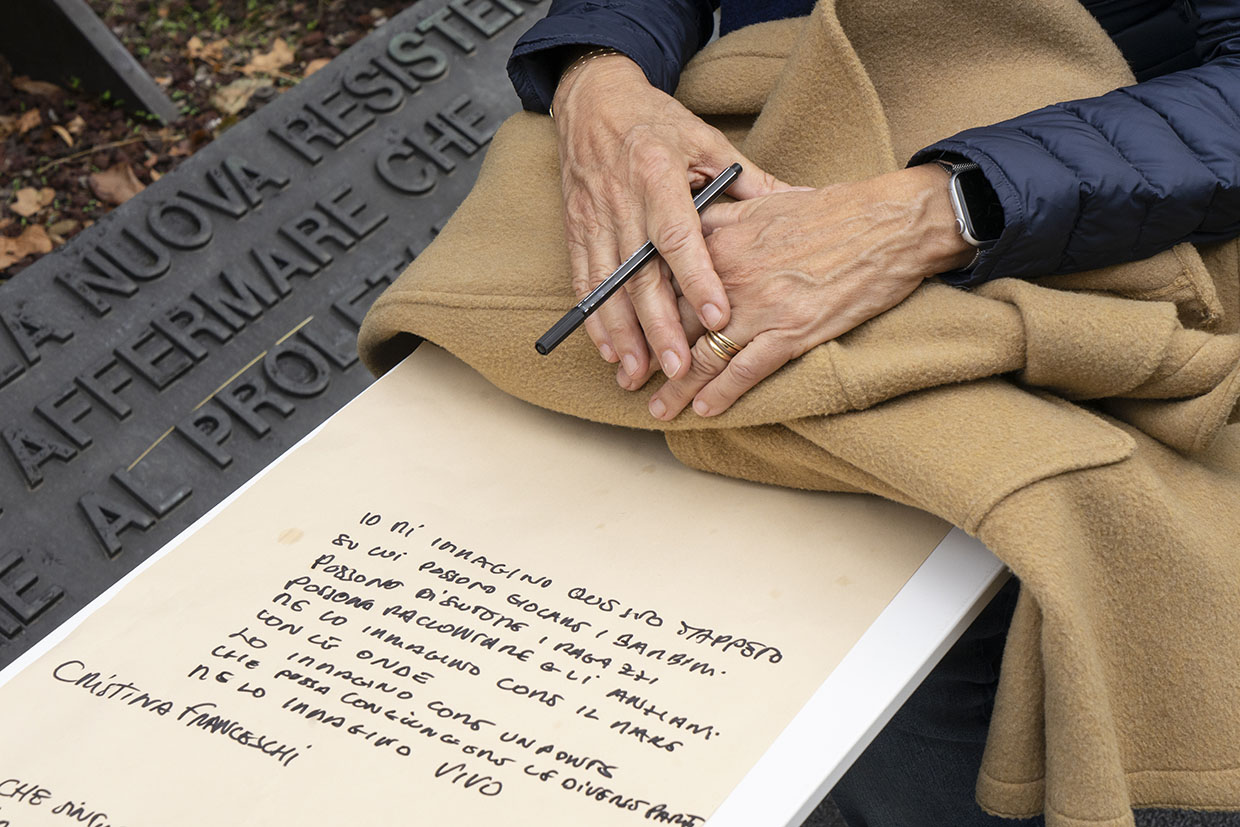 A NUOVA RESISTEN
AFFERMARE CHE
HE AL PROLET
IO MI IMMAGINO QUESTO TAPPETO
SU CUI POSSONO GIOCARE I BAMBINI.
POSSONO DISCUTERE I RAGAZZI
POSSONO RACCONTARE GLI ANZIANI.
ME LO IMMAGINO COME IL MARE
CON LE ONDE
LO IMMAGINO COME UN PONTE
CHE POSSA CONGIUNGERE LE DIVERSE PARTI
ME LO IMMAGINO VIVO
CRISTINA FRANCESCHI
CHE